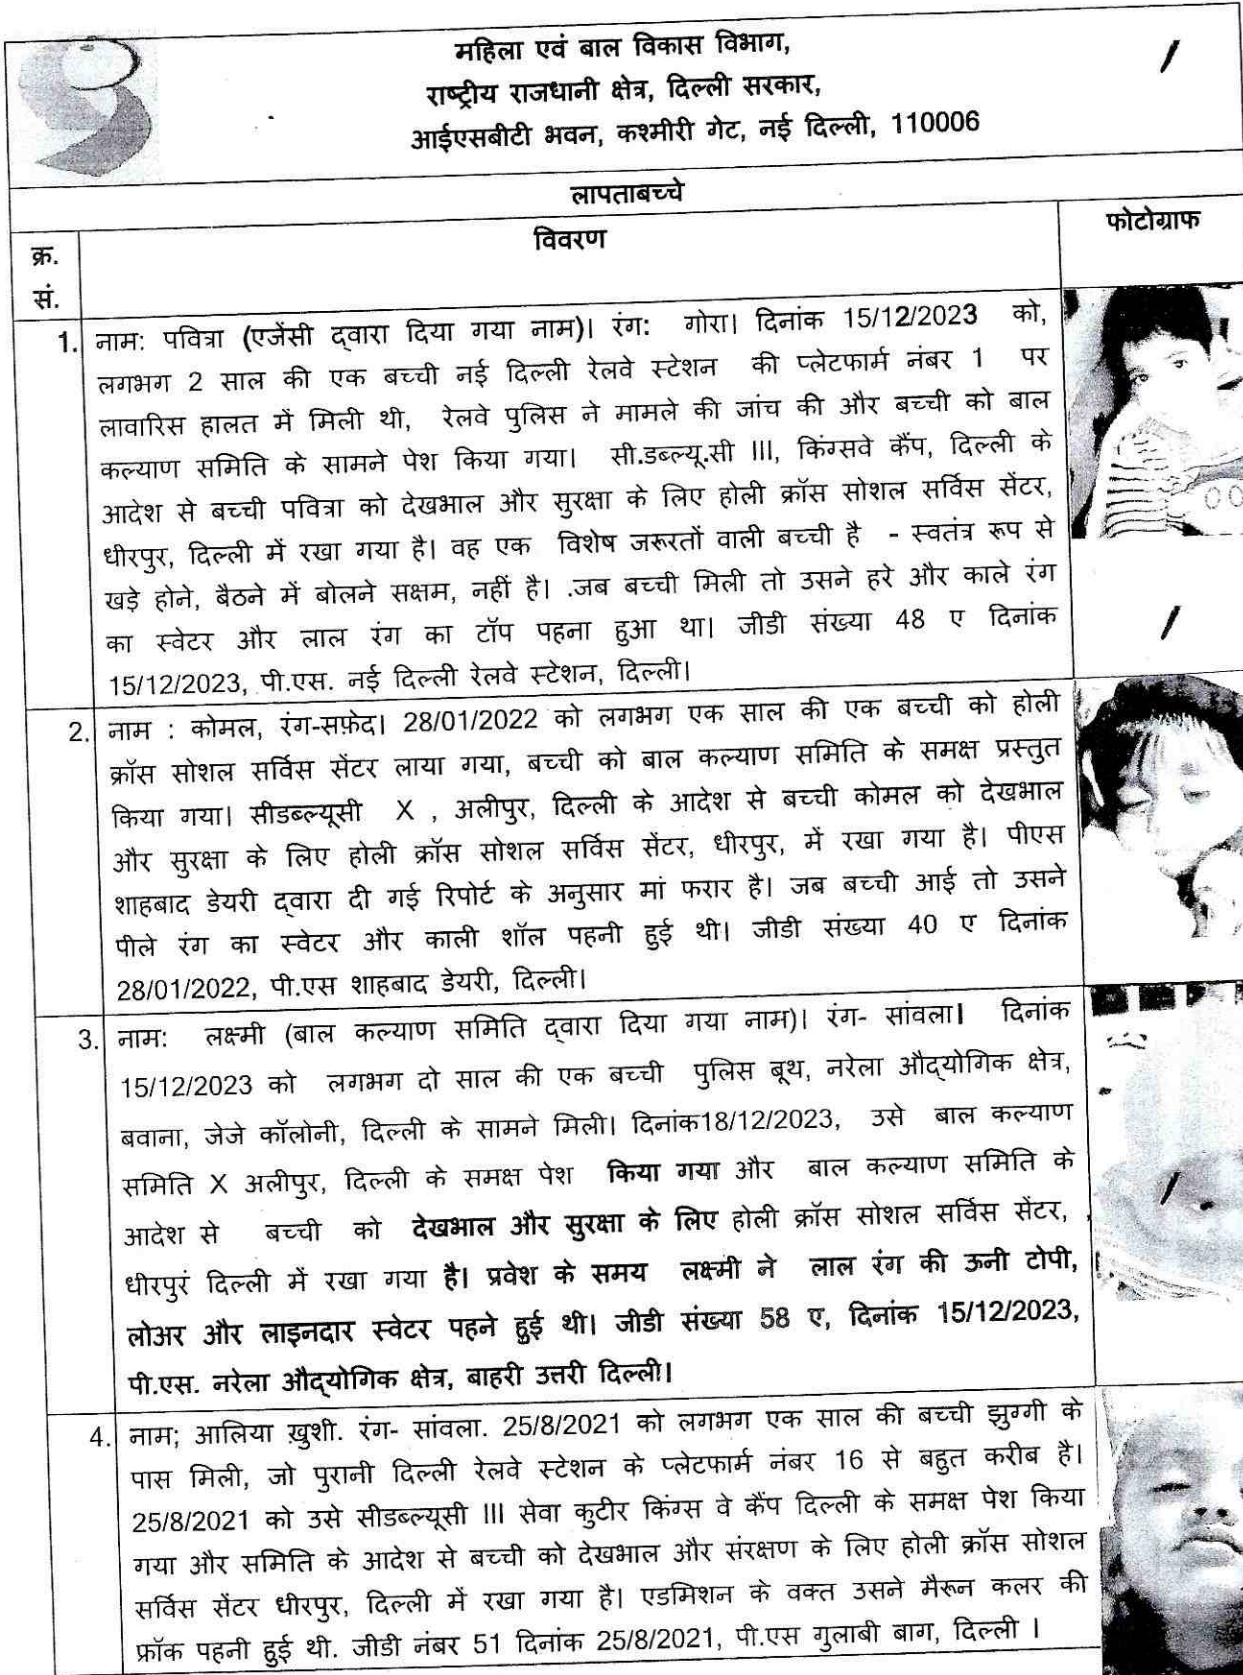 महिला एवं बाल विकास विभाग,
राष्ट्रीय राजधानी क्षेत्र, दिल्ली सरकार,
आईएसबीटी भवन, कश्मीरी गेट, नई दिल्ली, 110006
लापताबच्चे
क्र. सं.
विवरण
फोटोग्राफ
1. नाम: पवित्रा (एजेंसी द्वारा दिया गया नाम)। रंग: गोरा। दिनांक 15/12/2023 को,
लगभग 2 साल की एक बच्ची नई दिल्ली रेलवे स्टेशन की प्लेटफार्म नंबर 1 पर
लावारिस हालत में मिली थी, रेलवे पुलिस ने मामले की जांच की और बच्ची को बाल
कल्याण समिति के सामने पेश किया गया। सी.डब्ल्यू.सी III, किंग्सवे कैंप, दिल्ली के
आदेश से बच्ची पवित्रा को देखभाल और सुरक्षा के लिए होली क्रॉस सोशल सर्विस सेंटर,
धीरपुर, दिल्ली में रखा गया है। वह एक विशेष जरूरतों वाली बच्ची है - स्वतंत्र रूप से
खड़े होने, बैठने में बोलने सक्षम, नहीं है। .जब बच्ची मिली तो उसने हरे और काले रंग
का स्वेटर और लाल रंग का टॉप पहना हुआ था। जीडी संख्या 48 ए दिनांक
15/12/2023, पी.एस. नई दिल्ली रेलवे स्टेशन, दिल्ली।
2. नाम : कोमल, रंग-सफ़ेद। 28/01/2022 को लगभग एक साल की एक बच्ची को होली
क्रॉस सोशल सर्विस सेंटर लाया गया, बच्ची को बाल कल्याण समिति के समक्ष प्रस्तुत
किया गया। सीडब्ल्यूसी X , अलीपुर, दिल्ली के आदेश से बच्ची कोमल को देखभाल
और सुरक्षा के लिए होली क्रॉस सोशल सर्विस सेंटर, धीरपुर, में रखा गया है। पीएस
शाहबाद डेयरी द्वारा दी गई रिपोर्ट के अनुसार मां फरार है। जब बच्ची आई तो उसने
पीले रंग का स्वेटर और काली शॉल पहनी हुई थी। जीडी संख्या 40 ए दिनांक
28/01/2022, पी.एस शाहबाद डेयरी, दिल्ली।
3. नाम: लक्ष्मी (बाल कल्याण समिति द्वारा दिया गया नाम)। रंग- सांवला। दिनांक
15/12/2023 को लगभग दो साल की एक बच्ची पुलिस बूथ, नरेला औद्योगिक क्षेत्र,
बवाना, जेजे कॉलोनी, दिल्ली के सामने मिली। दिनांक18/12/2023, उसे बाल कल्याण
समिति X अलीपुर, दिल्ली के समक्ष पेश किया गया और बाल कल्याण समिति के
आदेश से बच्ची को देखभाल और सुरक्षा के लिए होली क्रॉस सोशल सर्विस सेंटर,
धीरपुरं दिल्ली में रखा गया है। प्रवेश के समय लक्ष्मी ने लाल रंग की ऊनी टोपी,
लोअर और लाइनदार स्वेटर पहने हुई थी। जीडी संख्या 58 ए, दिनांक 15/12/2023,
पी.एस. नरेला औद्योगिक क्षेत्र, बाहरी उत्तरी दिल्ली।
4. नाम; आलिया ख़ुशी. रंग- सांवला. 25/8/2021 को लगभग एक साल की बच्ची झुग्गी के
पास मिली, जो पुरानी दिल्ली रेलवे स्टेशन के प्लेटफार्म नंबर 16 से बहुत करीब है।
25/8/2021 को उसे सीडब्ल्यूसी III सेवा कुटीर किंग्स वे कैंप दिल्ली के समक्ष पेश किया
गया और समिति के आदेश से बच्ची को देखभाल और संरक्षण के लिए होली क्रॉस सोशल
सर्विस सेंटर धीरपुर, दिल्ली में रखा गया है। एडमिशन के वक्त उसने मैरून कलर की
फ्रॉक पहनी हुई थी. जीडी नंबर 51 दिनांक 25/8/2021, पी.एस गुलाबी बाग, दिल्ली ।